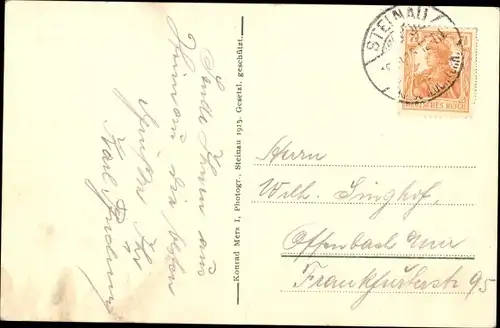 Sende Ihnen aus
Steinau die besten
Grüße Ihr
Karl
Konrad Merz I, Photogr., Steinau 1915. Gesetzl. geschützt.
STEINAU
DEUTSCHES REICH
Herrn
Wilh. Junghof,
Offenbach Main
Frankfurterstr 95